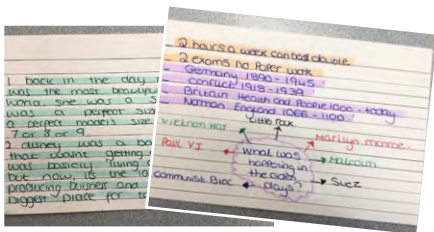 1 back in the day
was the most beautiful
world, she was a s
was a perfect siz
a perfect models size
7 or 8 or 9
2 disney was a ba
that wasnt getting
was basicly living
but now, is the
producing buisness and
biggest place for to
2 hours a week can be double.
2 exams no paper work
- Germany 1890 - 1945
- Conflict 1918 - 1939
- Britain Health and People 1000 - today
- Norman England 1066 - 1100
Vietnam war
Little Rock
Marilyn monroe.
Paul VI
What was
happening in
the olden
days?
Malcolm
Communist Bloc
Suez